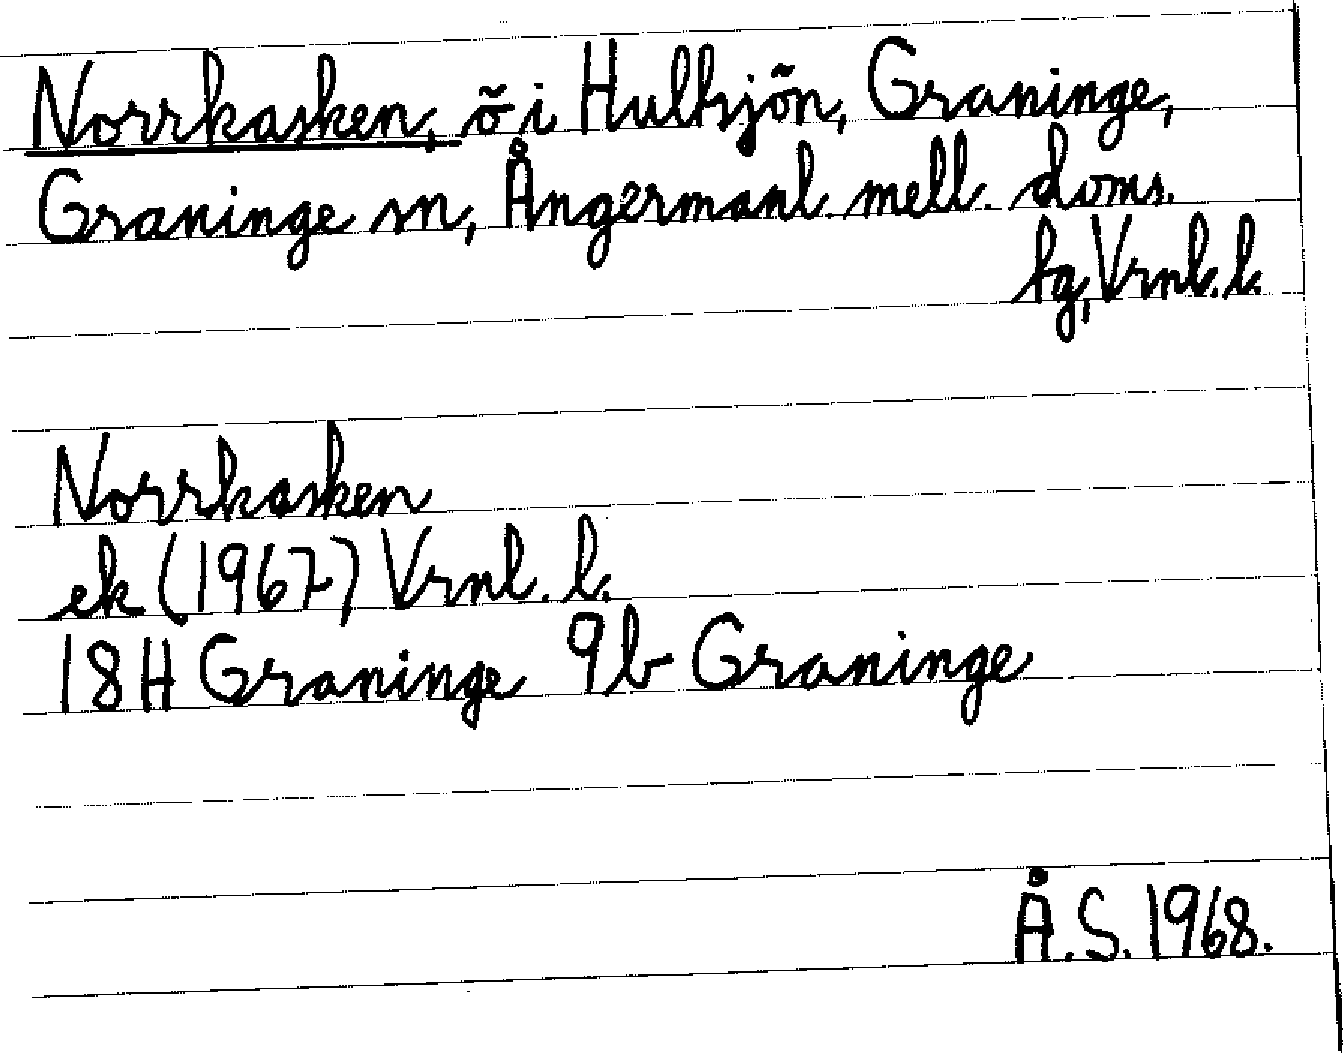 Norrkasken, ö i Hulksjön, Graninge,
Graninge sn, Ångermanl. mell. doms.
lg, Vrnl. l.
Norrkasken
ek (1967) Vrnl. l.
18H Graninge 9b Graninge
Å.S. 1968.